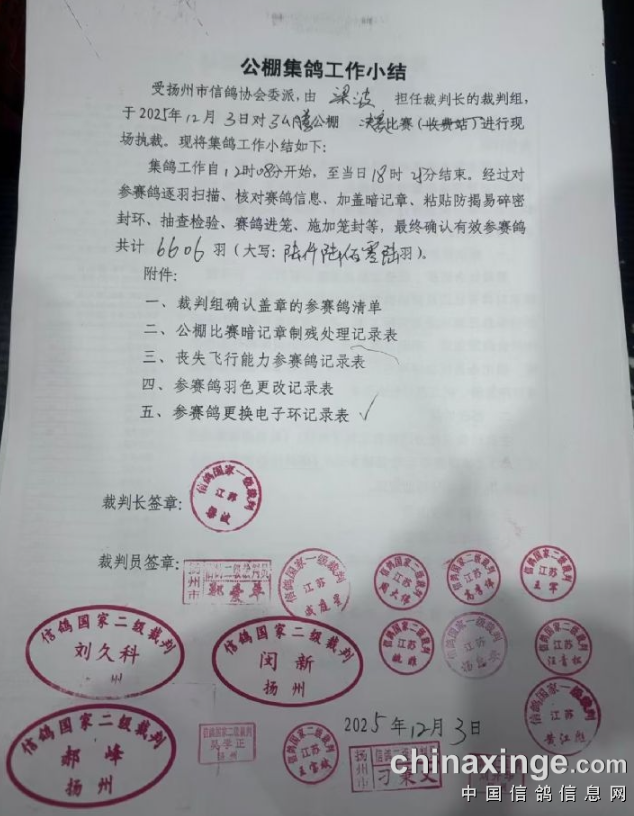 公棚集鸽工作小结
受扬州市信鸽协会委派,由 梁波 担任裁判长的裁判组,
于2025年12月3日对 公棚 决赛比赛(收费站)进行现
场执裁。现将集鸽工作小结如下:
集鸽工作自12时08分开始,至当日18时 分结束。经过对
参赛鸽逐羽扫描、核对赛鸽信息、加盖暗记章、粘贴防揭易碎密
封环、抽查检验、赛鸽进笼、施加笼封等,最终确认有效参赛鸽
共计 6606 羽(大写:陆仟陆佰零陆羽)。
附件:
一、裁判组确认盖章的参赛鸽清单
二、公棚比赛暗记章制残处理记录表
三、丧失飞行能力参赛鸽记录表
四、参赛鸽羽色更改记录表
五、参赛鸽更换电子环记录表 ✓
裁判长签章:
信鸽国家一级裁判
江苏
梁波
裁判员签章:
扬州市
信鸽国家一级裁判
江苏
信鸽国家一级裁判
江苏
信鸽国家一级裁判
江苏
信鸽国家一级裁判
江苏
信鸽国家二级裁判
刘久科
扬州
信鸽国家二级裁判
闵新
扬州
信鸽国家二级裁判
江苏
江苏
信鸽国家二级裁判
江苏
信鸽国家二级裁判
郝峰
扬州
信鸽国家二级裁判
扬州
信鸽国家二级裁判
江苏
2025年12月3日
信鸽国家一级裁判
江苏
黄江彪
扬州市
chinaxinge.com
中国信鸽信息网